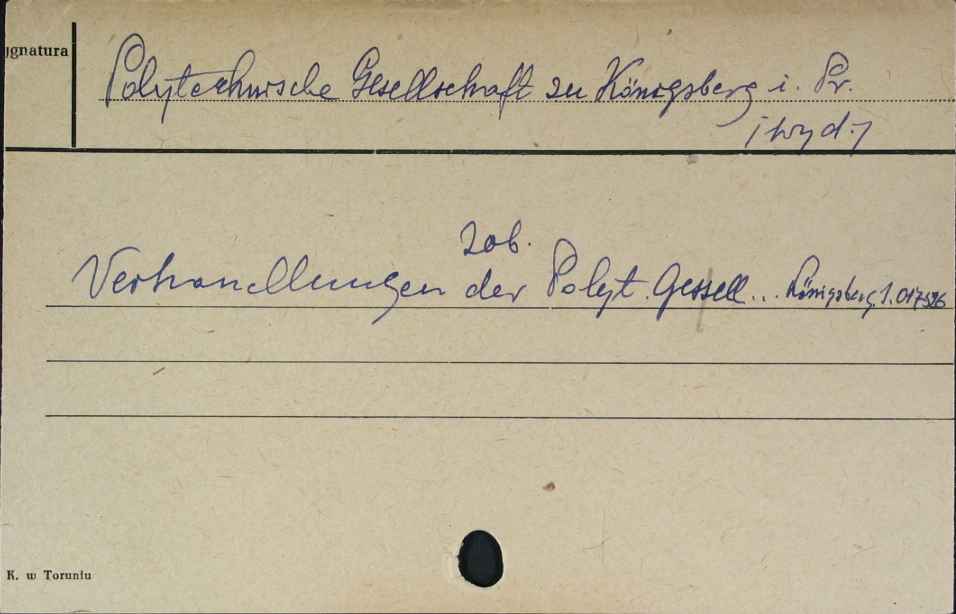 ygnatura
Polytechnische Gesellschaft zu Königsberg i. Pr.
/wyd./
zob.
Verhandlungen der Polyt. Gesell... Königsberg
K. w Toruniu